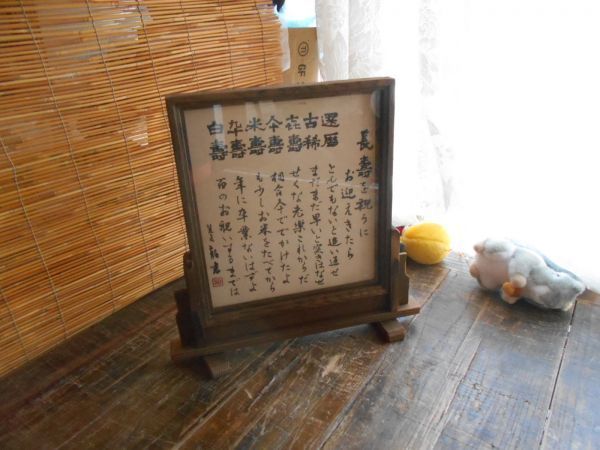 長壽を祝うに
お迎えきたら
還暦 とんでもないと追い返せ
古稀 まだまだ早いと突きはなせ
喜壽 せくな老楽これからだ
仐壽 相合仐ででかけたよ
米壽 も少しお米をたべてから
卆壽 年に卒業ないはずよ
白壽 百のお祝いするまでは